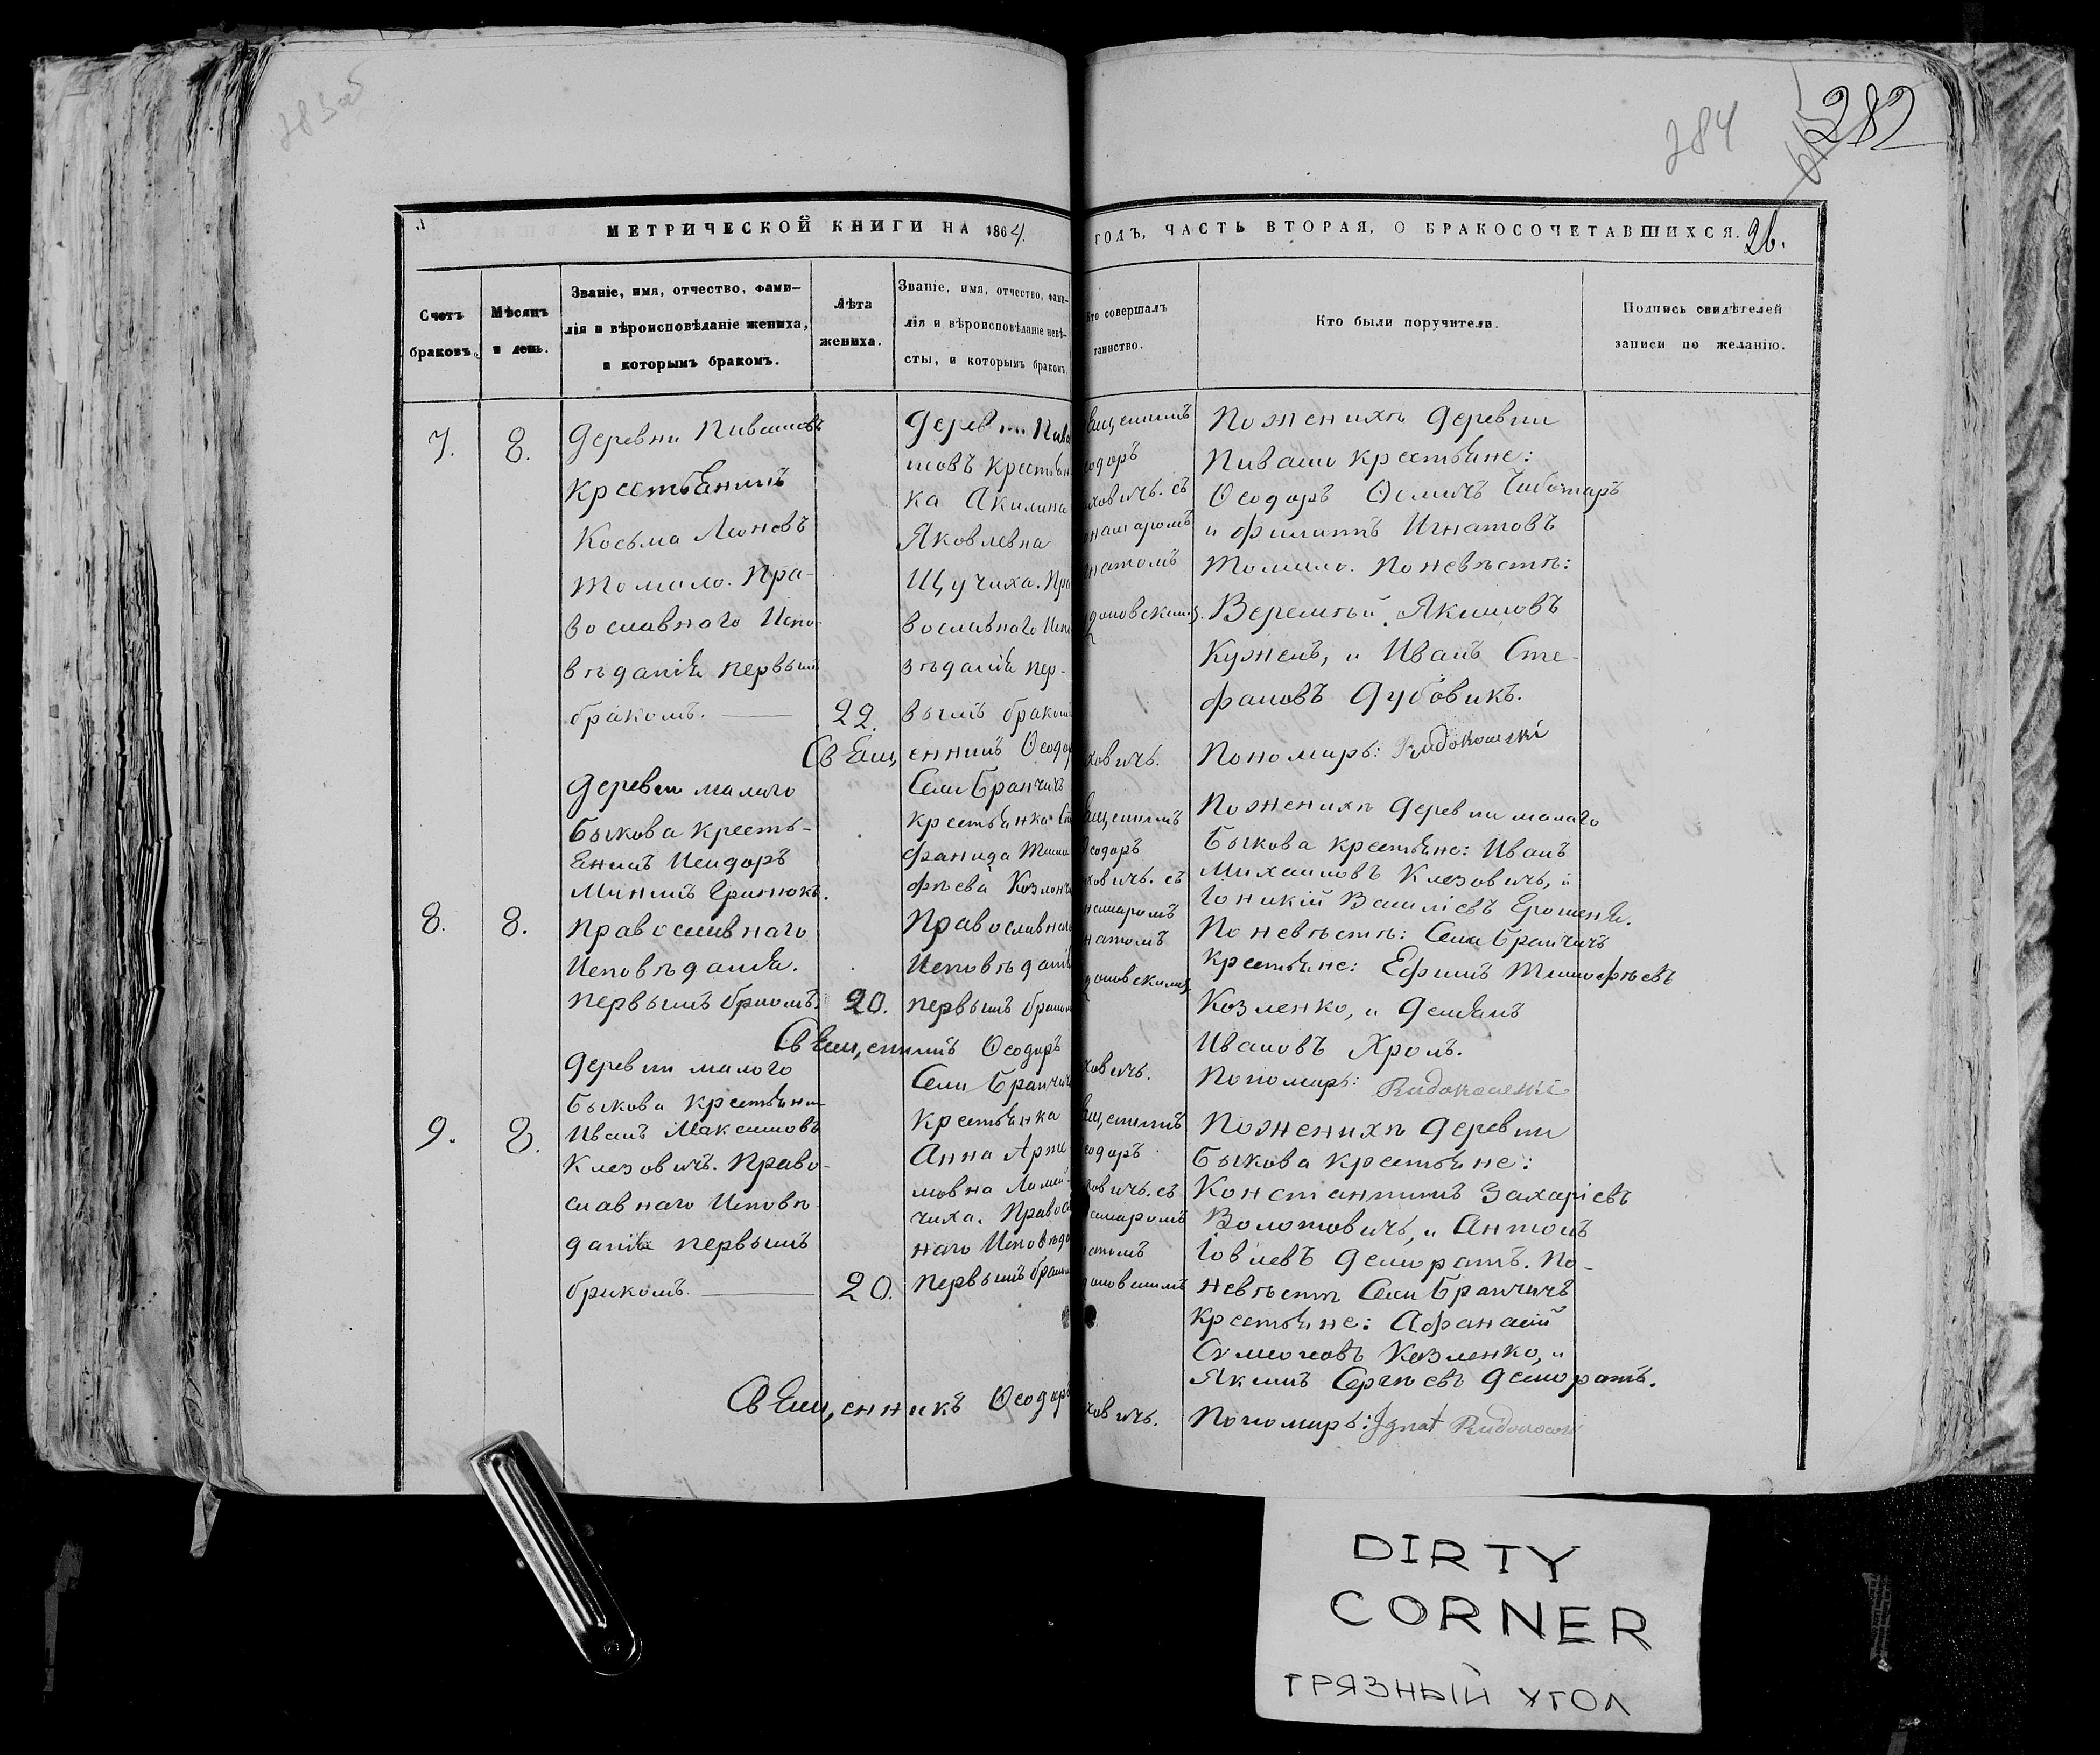 284
282
МЕТРИЧЕСКОЙ КНИГИ НА 1864.
ГОДЪ, ЧАСТЬ ВТОРАЯ, О БРАКОСОЧЕТАВШИХСЯ. 26.
Счетъ
браковъ.
Мѣсяцъ
и день.
Званіе, имя, отчество, фами-
лія и вѣроисповѣданіе жениха,
и которымъ бракомъ.
Лѣта
жениха.
Званіе, имя, отчество, фами-
лія и вѣроисповѣданіе невѣ-
сты, и которымъ бракомъ.
Кто совершалъ
таинство.
Кто были поручители.
Подпись свидѣтелей
записи по желанію.
7.
8.
Деревни Пивашовъ
Крестьянинъ
Косьма Леоновъ
Томило. Пра-
вославнаго Испо-
вѣданія первымъ
бракомъ.
22.
Деревни Пива
шовъ Крестьян
ка Акилина
Яковлевна
Щучиха. Пра
вославнаго Испо
вѣданія пер-
вымъ бракомъ
ященникъ
еодоръ
ховичъ. съ
номаромъ
натомъ
доновскимъ.
По женихѣ Деревни
Пиваши крестьяне:
Ѳеодоръ Ѳоминъ Чиботаръ
и Филиппъ Игнатовъ
Томило. По невѣстѣ:
Веремѣй Якимовъ
Кужель, и Иванъ Сте-
фановъ Дубовикъ.
Священникъ Ѳеодоръ
ховичъ.
Пономарь: Rudokowski
8.
8.
Деревни малаго
Быкова Кресть-
янинъ Исидоръ
Мининъ Гринюкъ.
Православнаго
Исповѣданія.
первымъ бракомъ.
20.
Села Бранчичъ
крестьянка Сте
фанида Тимо
фѣева Козленч
Православнаго
Исповѣданія
первымъ бракомъ
ященникъ
Ѳеодоръ
ховичъ. съ
номаромъ
натомъ
доновскимъ
По женихѣ Деревни малаго
Быкова крестьяне: Иванъ
Михаиловъ Клезовичъ, и
Іоникій Василіевъ Ерошеня.
По невѣстѣ: Села Бранчичъ
крестьяне: Ефимъ Тимофѣевъ
Козленко, и Демянъ
Ивановъ Хролъ.
Священникъ Ѳеодоръ
ховичъ.
Пономарь: Rudokowski
9.
8.
Деревни малого
Быкова Крестьянин
Иванъ Максимовъ
Клезовичъ. Право-
славнаго Исповѣ-
данія первымъ
бракомъ.
20.
Села Бранчичъ
Крестьянка
Анна Арте
мовна Ломей-
чиха. Правосл
наго Исповѣда
первымъ бракомъ
ященникъ
еодоръ
ховичъ. съ
номаромъ
натомъ
доновскимъ
По женихѣ Деревни
Быкова крестьяне:
Константинъ Захаріевъ
Волотовичъ, и Антонъ
Іовлевъ Демората. По-
невѣстѣ Села Бранчичъ
крестьяне: Афанасій
Сумоновъ Козленко, и
Якимъ Сергѣевъ Деморатъ.
Священникъ Ѳеодоръ
ховичъ.
Пономарь: Ignat Rudokowski
DIRTY
CORNER
ГРЯЗНЫЙ УГОЛ